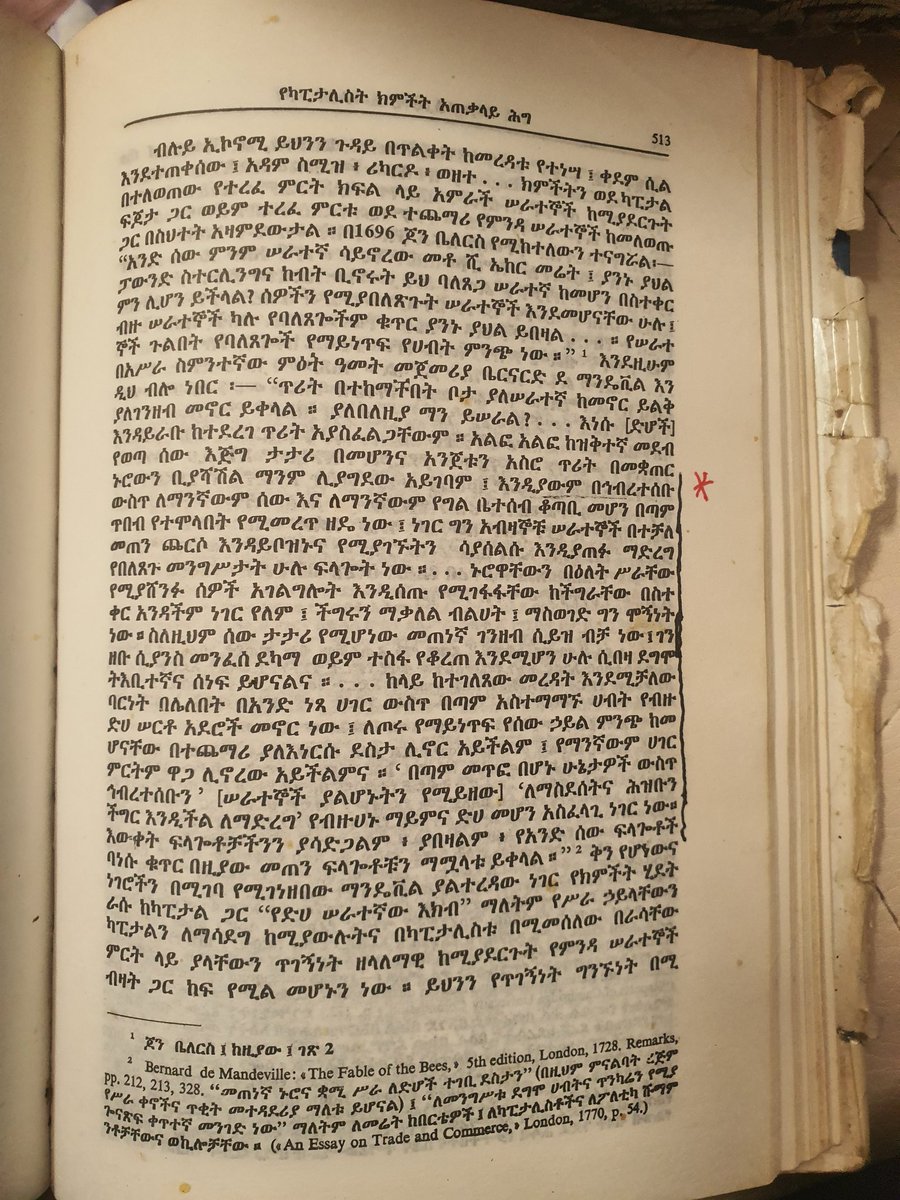 የካፒታሊስት ክምችት አጠቃላይ ሕግ
513
ብሉይ ኢኮኖሚ ይህንን ጉዳይ በጥልቀት ከመረዳቱ የተነሣ ፤ ቀደም ሲል
እንደተጠቀሰው ፤ አዳም ስሚዝ ፥ ሪካርዶ ፥ ወዘተ . . . ክምችትን ወደ ካፒታል
በተለወጠው የተረፈ ምርት ክፍል ላይ አምራች ሠራተኞች ከሚያደርጉት
ፍጆታ ጋር ወይም ተረፈ ምርቱ ወደ ተጨማሪ የምንዳ ሠራተኞች ከመለወጡ
ጋር በስህተት አዛምደውታል ። በ1696 ጆን ቤለርስ የሚከተለውን ተናግሯል፡—
“አንድ ሰው ምንም ሠራተኛ ሳይኖረው መቶ ሺ ኤከር መሬት ፤ ያንኑ ያህል
ፓውንድ ስተርሊንግና ከብት ቢኖሩት ይህ ባለጸጋ ሠራተኛ ከመሆን በስተቀር
ምን ሊሆን ይችላል? ሰዎችን የሚያበለጽጉት ሠራተኞች እንደመሆናቸው ሁሉ ፤
ብዙ ሠራተኞች ካሉ የባለጸጎችም ቁጥር ያንኑ ያህል ይበዛል . . . ። የሠራተ
ኞች ጉልበት የባለጸጎች የማይነጥፍ የሀብት ምንጭ ነው ።” ¹ እንደዚሁም
በአሥራ ስምንተኛው ምዕት ዓመት መጀመሪያ ቤርናርድ ደ ማንዴቪል እን
ዲህ ብሎ ነበር ፡— “ጥሪት በተከማችበት ቦታ ያለሠራተኛ ከመኖር ይልቅ
ያለገንዘብ መኖር ይቀላል ። ያለበለዚያ ማን ይሠራል? . . . እነሱ [ድሆች]
እንዳይራቡ ከተደረገ ጥሪት አያስፈልጋቸውም ። አልፎ አልፎ ከዝቅተኛ መደብ
የወጣ ሰው እጅግ ታታሪ በመሆንና አንጀቱን አስሮ ጥሪት በመቋጠር
ኑሮውን ቢያሻሽል ማንም ሊያግደው አይገባም ፤ እንዲያውም በኅብረተሰቡ
ውስጥ ለማንኛውም ሰው እና ለማንኛውም የግል ቤተሰብ ቆጣቢ መሆን በጣም
ጥበብ የተሞላበት የሚመረጥ ዘዴ ነው ፤ ነገር ግን አብዛኛቹ ሠራተኞች በተቻለ
መጠን ጨርሶ እንዳይቦዝኑና የሚያገኙትን ሳያሰልሱ እንዲያጠፉ ማድረግ
የበለጸጉ መንግሥታት ሁሉ ፍላጎት ነው ። . . . ኑሮዋቸውን በዕለት ሥራቸው
የሚያሸንፉ ሰዎች አገልግሎት እንዲሰጡ የሚገፋፋቸው ከችግራቸው በስተ
ቀር አንዳችም ነገር የለም ፤ ችግሩን ማቃለል ብልሀት ፤ ማስወገድ ግን ሞኝነት
ነው ። ስለዚህም ሰው ታታሪ የሚሆነው መጠነኛ ገንዘብ ሲይዝ ብቻ ነው ፤ ገን
ዘቡ ሲያንስ መንፈሰ ደካማ ወይም ተስፋ የቆረጠ እንደሚሆን ሁሉ ሲበዛ ደግሞ
ትእቢተኛና ሰነፍ ይሆናልና ። . . . ከላይ ከተገለጸው መረዳት እንደሚቻለው
ባርነት በሌለበት በአንድ ነጻ ሀገር ውስጥ በጣም አስተማማኙ ሀብት የብዙ
ድሀ ሠርቶ አደሮች መኖር ነው ፤ ለጦሩ የማይነጥፍ የሰው ኃይል ምንጭ ከመ
ሆናቸው በተጨማሪ ያለእነርሱ ደስታ ሊኖር አይችልም ፤ የማንኛውም ሀገር
ምርትም ዋጋ ሊኖረው አይችልምና ። ‘ በጣም መጥፎ በሆኑ ሁኔታዎች ውስጥ
ኅብረተሰቡን ’ [ሠራተኞች ያልሆኑትን የሚይዘው] ‘ለማስደሰትና ሕዝቡን
ችግር እንዲችል ለማድረግ’ የብዙሀኑ ማይምና ድሀ መሆን አስፈላጊ ነገር ነው።
እውቀት ፍላጎቶቻችንን ያሳድጋልም ፥ ያበዛልም ፥ የአንድ ሰው ፍላጎቶች
ባነሱ ቁጥር በዚያው መጠን ፍላጎቶቹን ማሟላቱ ይቀላል ።” ² ቅን የሆነውና
ነገሮችን በሚገባ የሚገነዘበው ማንዴቪል ያልተረዳው ነገር የክምችት ሂደት
ራሱ ከካፒታል ጋር “የድሀ ሠራተኛው እክብ” ማለትም የሥራ ኃይላቸውን
ካፒታልን ለማሳደግ ከሚያውሉትና በካፒታሊስቱ በሚመሰለው በራሳቸው
ምርት ላይ ያላቸውን ጥገኝነት ዘላለማዊ ከሚያደርጉት የምንዳ ሠራተኞች
ብዛት ጋር ከፍ የሚል መሆኑን ነው ። ይህንን የጥገኝነት ግንኙነት በሚ
¹ ጆን ቤለርስ ፤ ከዚያው ፤ ገጽ 2
² Bernard de Mandeville: «The Fable of the Bees,» 5th edition, London, 1728. Remarks,
pp. 212, 213, 328. “መጠነኛ ኑሮና ቋሚ ሥራ ለድሆች ተገቢ ደስታን” (በዚህም ምናልባት ረጅም
የሥራ ቀኖችና ጥቂት መተዳደሪያ ማለቱ ይሆናል) ፤ “ለመንግሥቱ ደግሞ ሀብትና ጥንካሬን የሚያ
ጎናጽፍ ቀጥተኛ መንገድ ነው” ማለትም ለመሬት ከበርቴዎች ፤ ለካፒታሊስቶችና ለፖለቲካ ሹማም
ንቶቻቸውና ወኪሎቻቸው ። («An Essay on Trade and Commerce,» London, 1770, p. 54.)